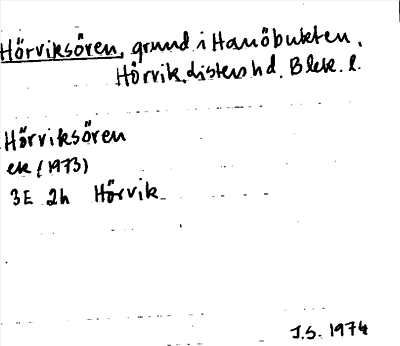 Hörviksören, grund i Hanöbukten,
Hörvik, Listers hd, Blek. l.
Hörviksören
ek (1973)
3E 2h Hörvik
J.S. 1974